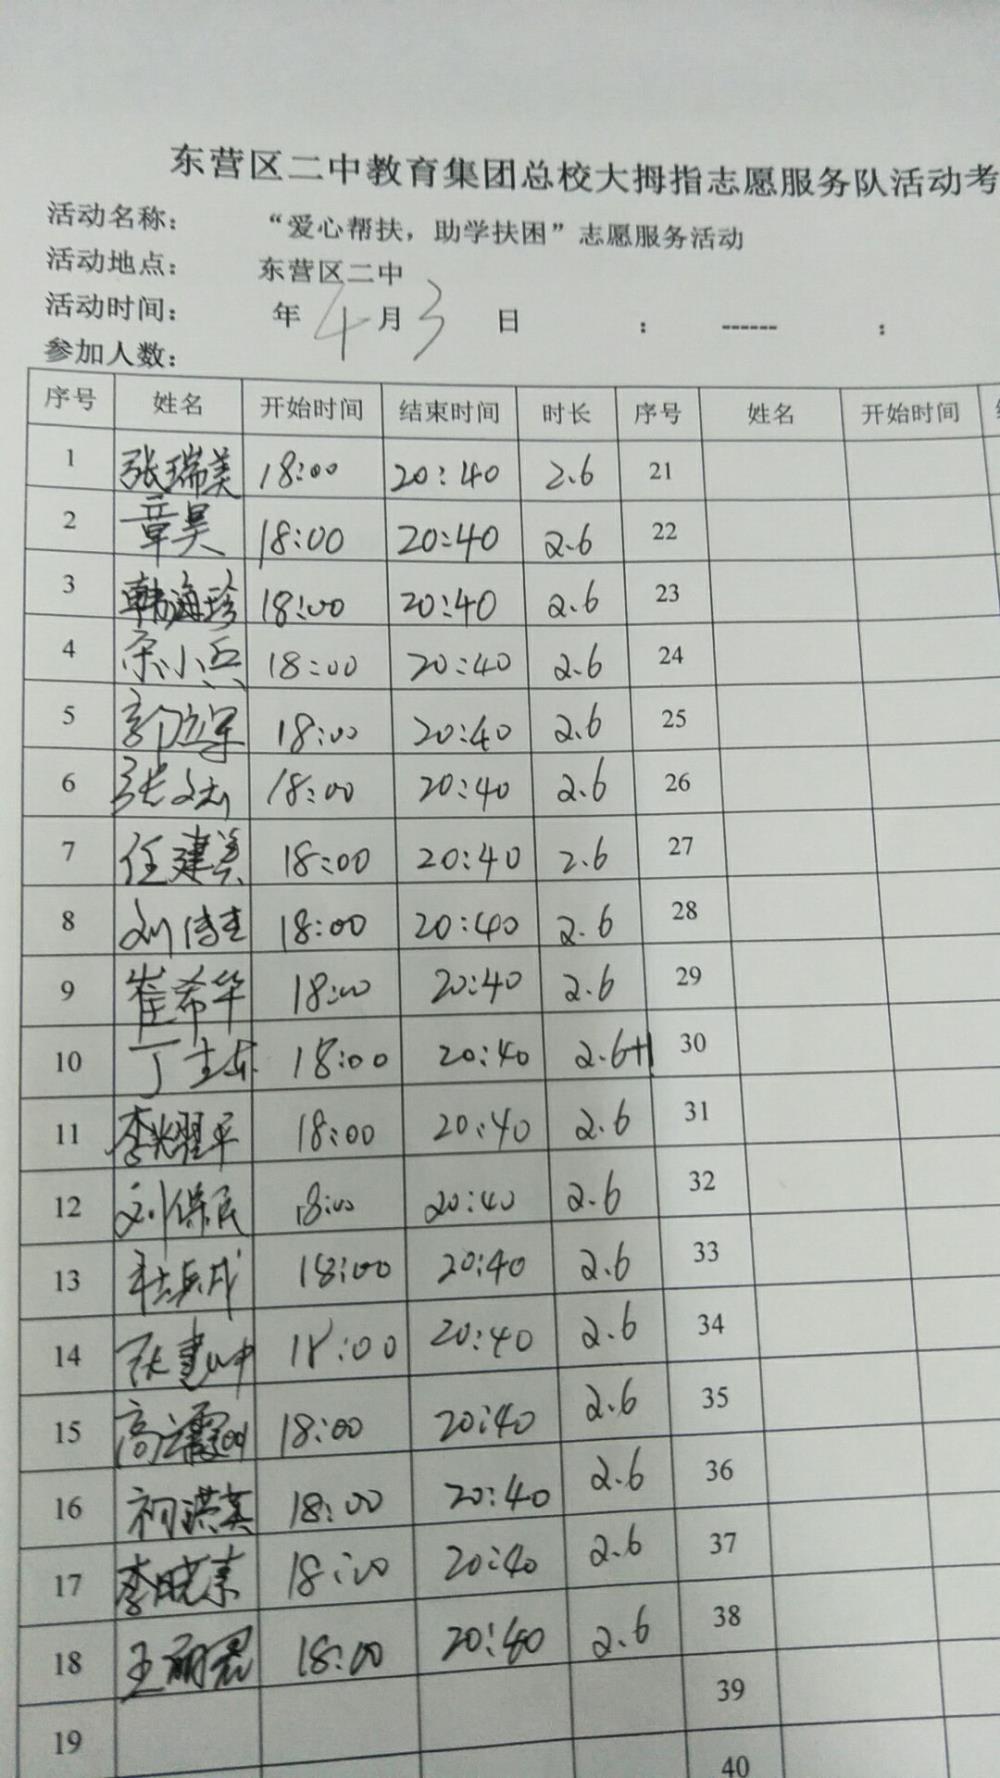 东营区二中教育集团总校大拇指志愿服务队活动考
活动名称： “爱心帮扶，助学扶困”志愿服务活动
活动地点： 东营区二中
活动时间： 年 4 月 3 日 ： ------ ：
参加人数：
序号 姓名 开始时间 结束时间 时长 序号 姓名 开始时间
1 张瑞美 18:00 20:40 2.6 21
2 章昊 18:00 20:40 2.6 22
3 韩海珍 18:00 20:40 2.6 23
4 小兵 18:00 20:40 2.6 24
5 郭立军 18:00 20:40 2.6 25
6 张 18:00 20:40 2.6 26
7 任建美 18:00 20:40 2.6 27
8 刘 18:00 20:40 2.6 28
9 崔希华 18:00 20:40 2.6 29
10 丁 18:00 20:40 2.6+1 30
11 李耀平 18:00 20:40 2.6 31
12 刘保民 18:00 20:40 2.6 32
13 18:00 20:40 2.6 33
14 张建中 18:00 20:40 2.6 34
15 高 18:00 20:40 2.6 35
16 祁洪英 18:00 20:40 2.6 36
17 李晓素 18:00 20:40 2.6 37
18 王丽君 18:00 20:40 2.6 38
19 39
40